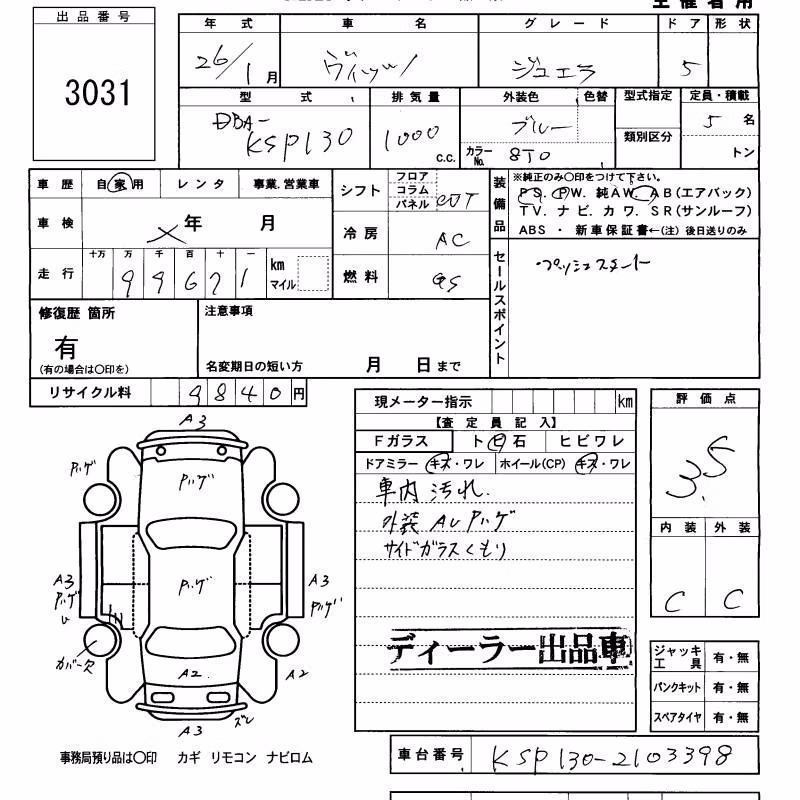 出品番号
3031
年式 車名 グレード ドア 形状
26/1月 ヴィッツ ジュエラ 5
型式 排気量 外装色 色替 型式指定 定員・積載
DBA-KSP130 1000 c.c. ブルー 類別区分 5名
カラーNo. 8T0 トン
車歴 自家用 レンタ 事業.営業車
シフト フロア コラム パネル CVT
装備品 ※純正のみ〇印をつけて下さい。
PS. PW. 純AW. AB(エアバック)
TV. ナビ. カワ. SR(サンルーフ)
ABS ・ 新車保証書←(注) 後日送りのみ
車検 × 年 月
冷房 AC
走行 十万 万 千 百 十 一
99671 km マイル
燃料 GS
セールスポイント プッシュスタート
修復歴 箇所
有
(有の場合は〇印を)
注意事項
名変期日の短い方 月 日 まで
リサイクル料 9840円
現メーター指示 km
【査定員記入】
Fガラス ト ビ 石 ヒビワレ
ドアミラー キズ・ワレ ホイール(CP) キズ・ワレ
車内 汚れ.
外装 AU ハゲ
サイドガラスくもり
ディーラー出品車
評価点
3.5
内装 外装
C C
A3
ハゲ ハゲ
A3 ハゲ ハゲ A3 ハゲ
U
カバー欠 A2. A2
A3 ズレ
ジャッキ工具 有・無
パンクキット 有・無
スペアタイヤ 有・無
事務局預り品は〇印 カギ リモコン ナビロム
車台番号 KSP130-2103398